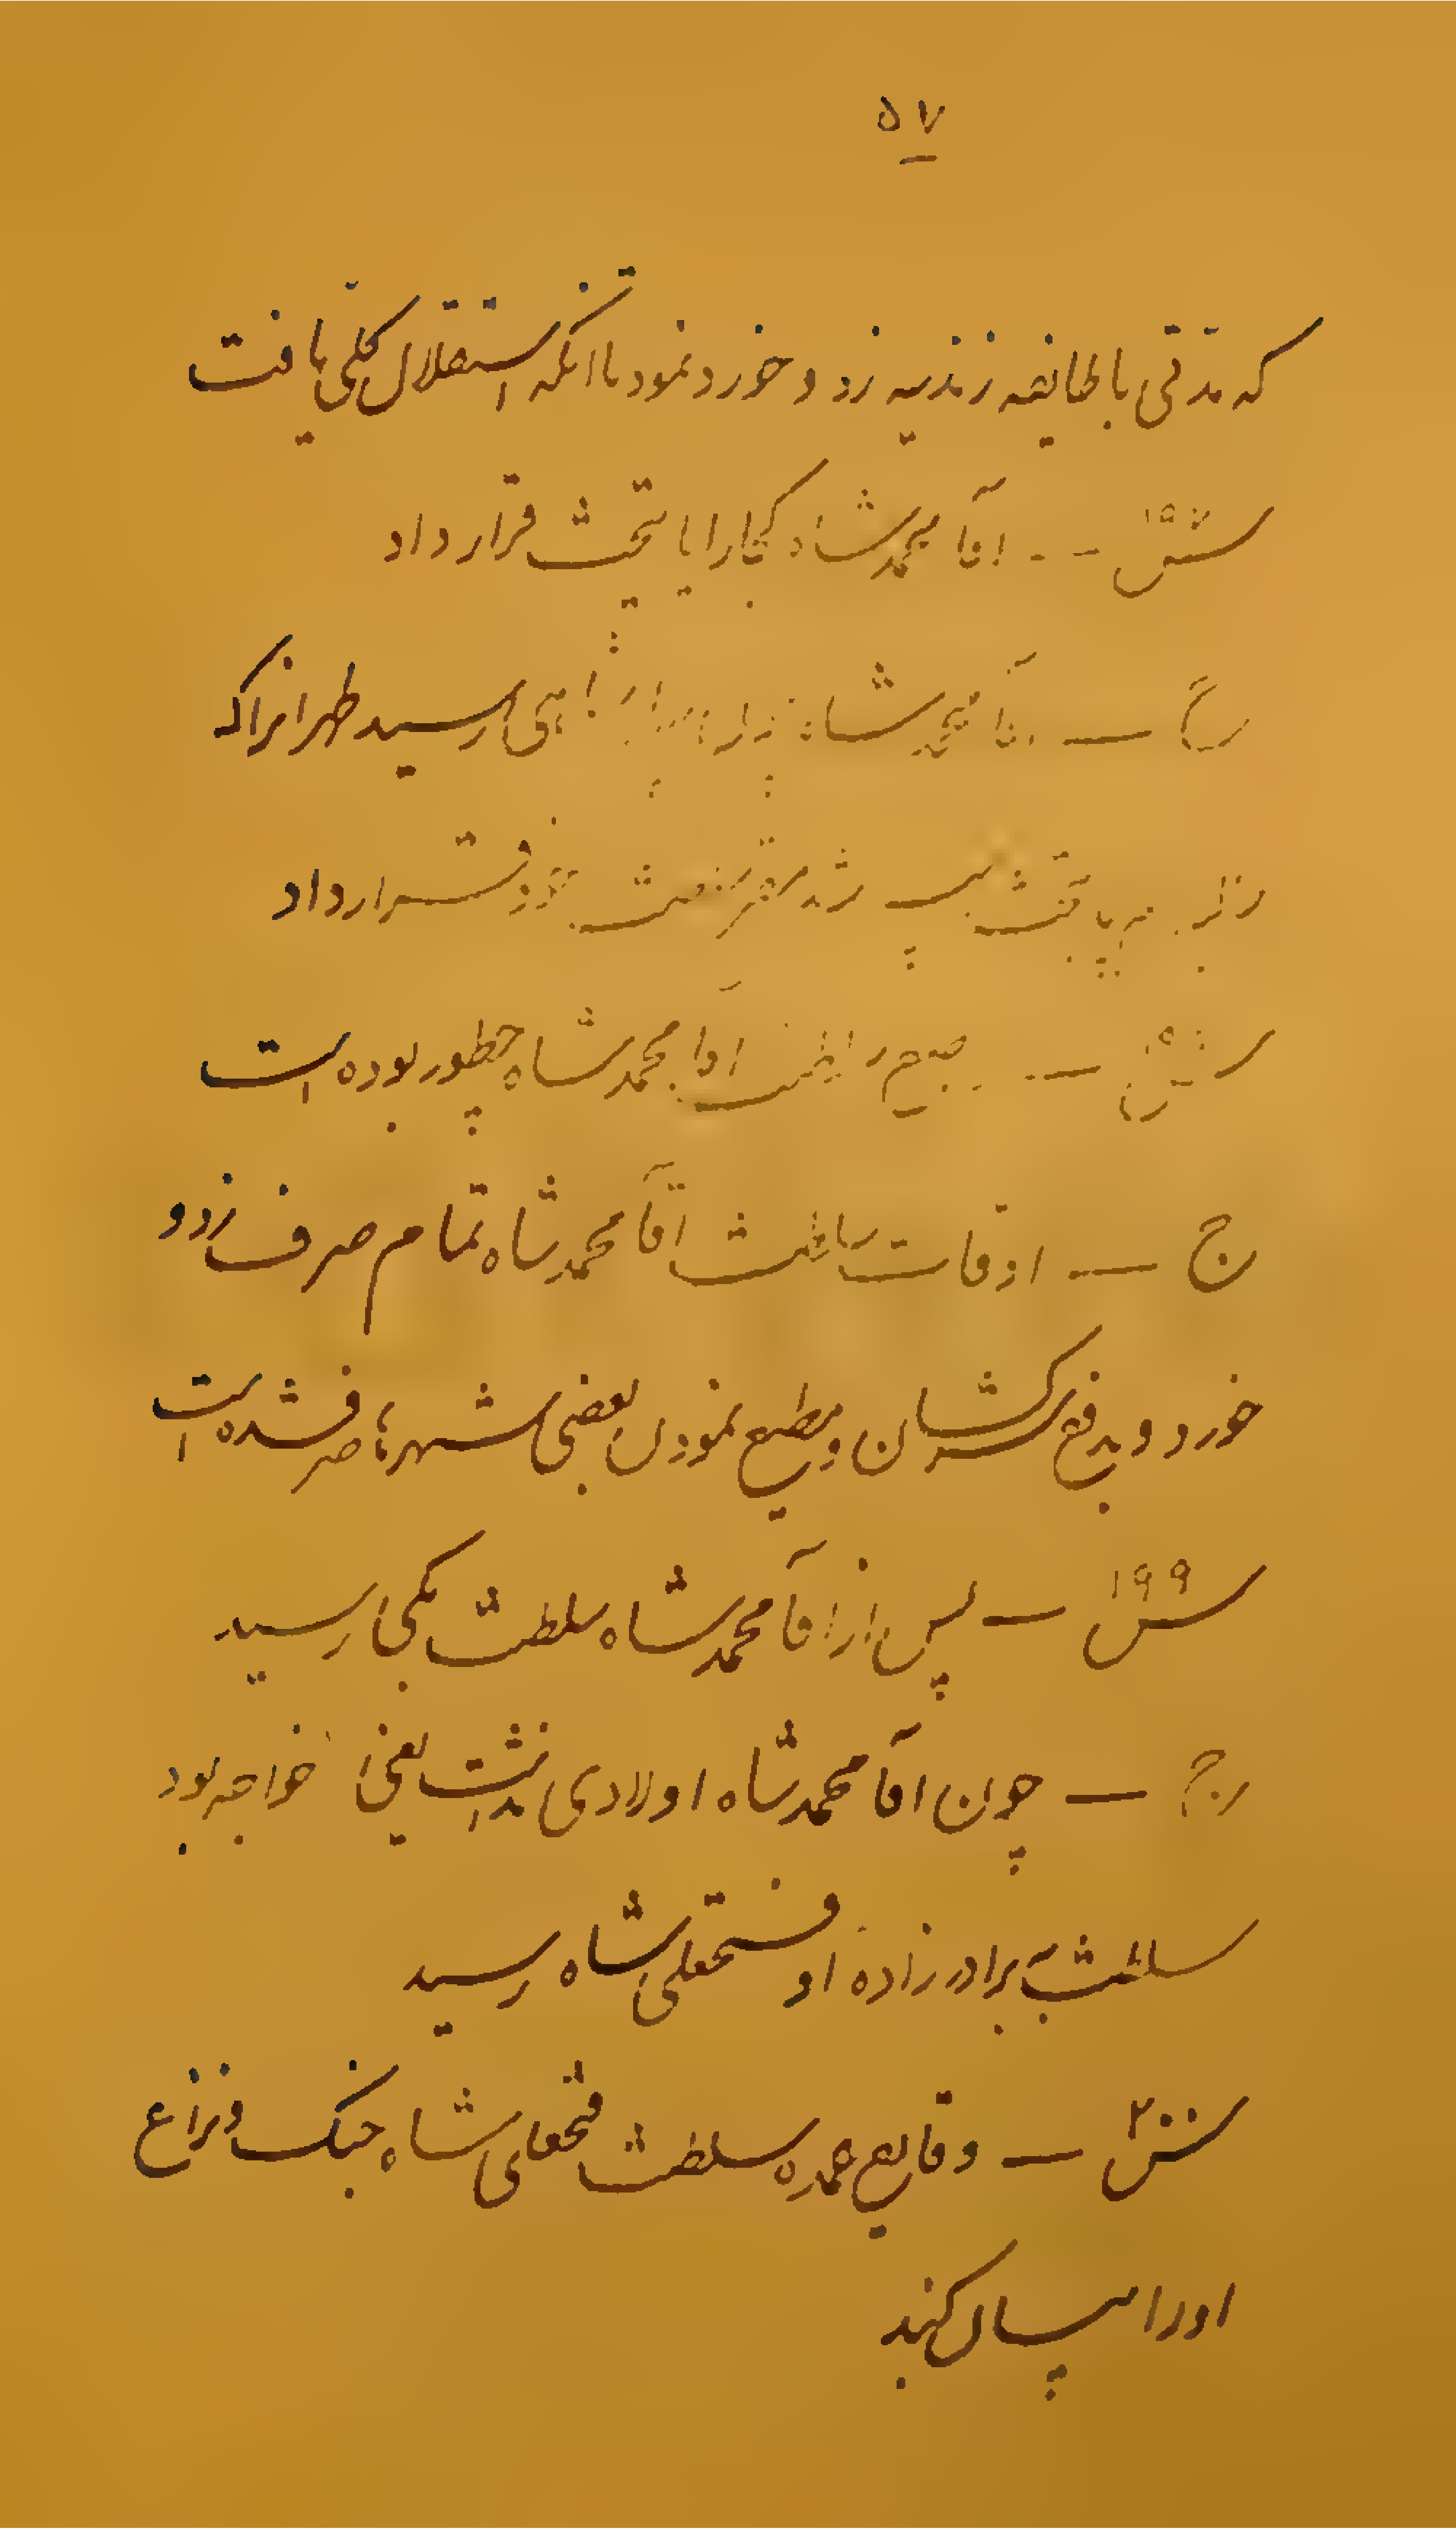 ۵۷
که مدتی با طایفه زندیه زد و خورد نمود تا انکه استقلال کلی یافت
س ۱۹۷ ــ آقا محمد شاه کجا را پایتخت قرار داد
ج ــ آقا محمد شاه رسید طهران را که
پایتخت شد مقر سلطنت خود قرار داد
س ــ سلطنت آقا محمد شاه چطور بوده است
ج ــ اوقات سلطنت آقا محمد شاه تمام صرف زد و
خورد و بدفع سرکشان و مطیع نمودن بعضی شهرها صرف شده است
س ۱۹۹ ــ پس از آقا محمد شاه سلطنت بکی رسید
ج ــ چون آقا محمد شاه اولادی نداشت یعنی خواجه بود
سلطنت به برادر زاده او فتحعلی شاه رسید
س ۲۰۰ ــ وقایع عمده سلطنت فتحعلی شاه جنک و نزاع
او را بیان کنید